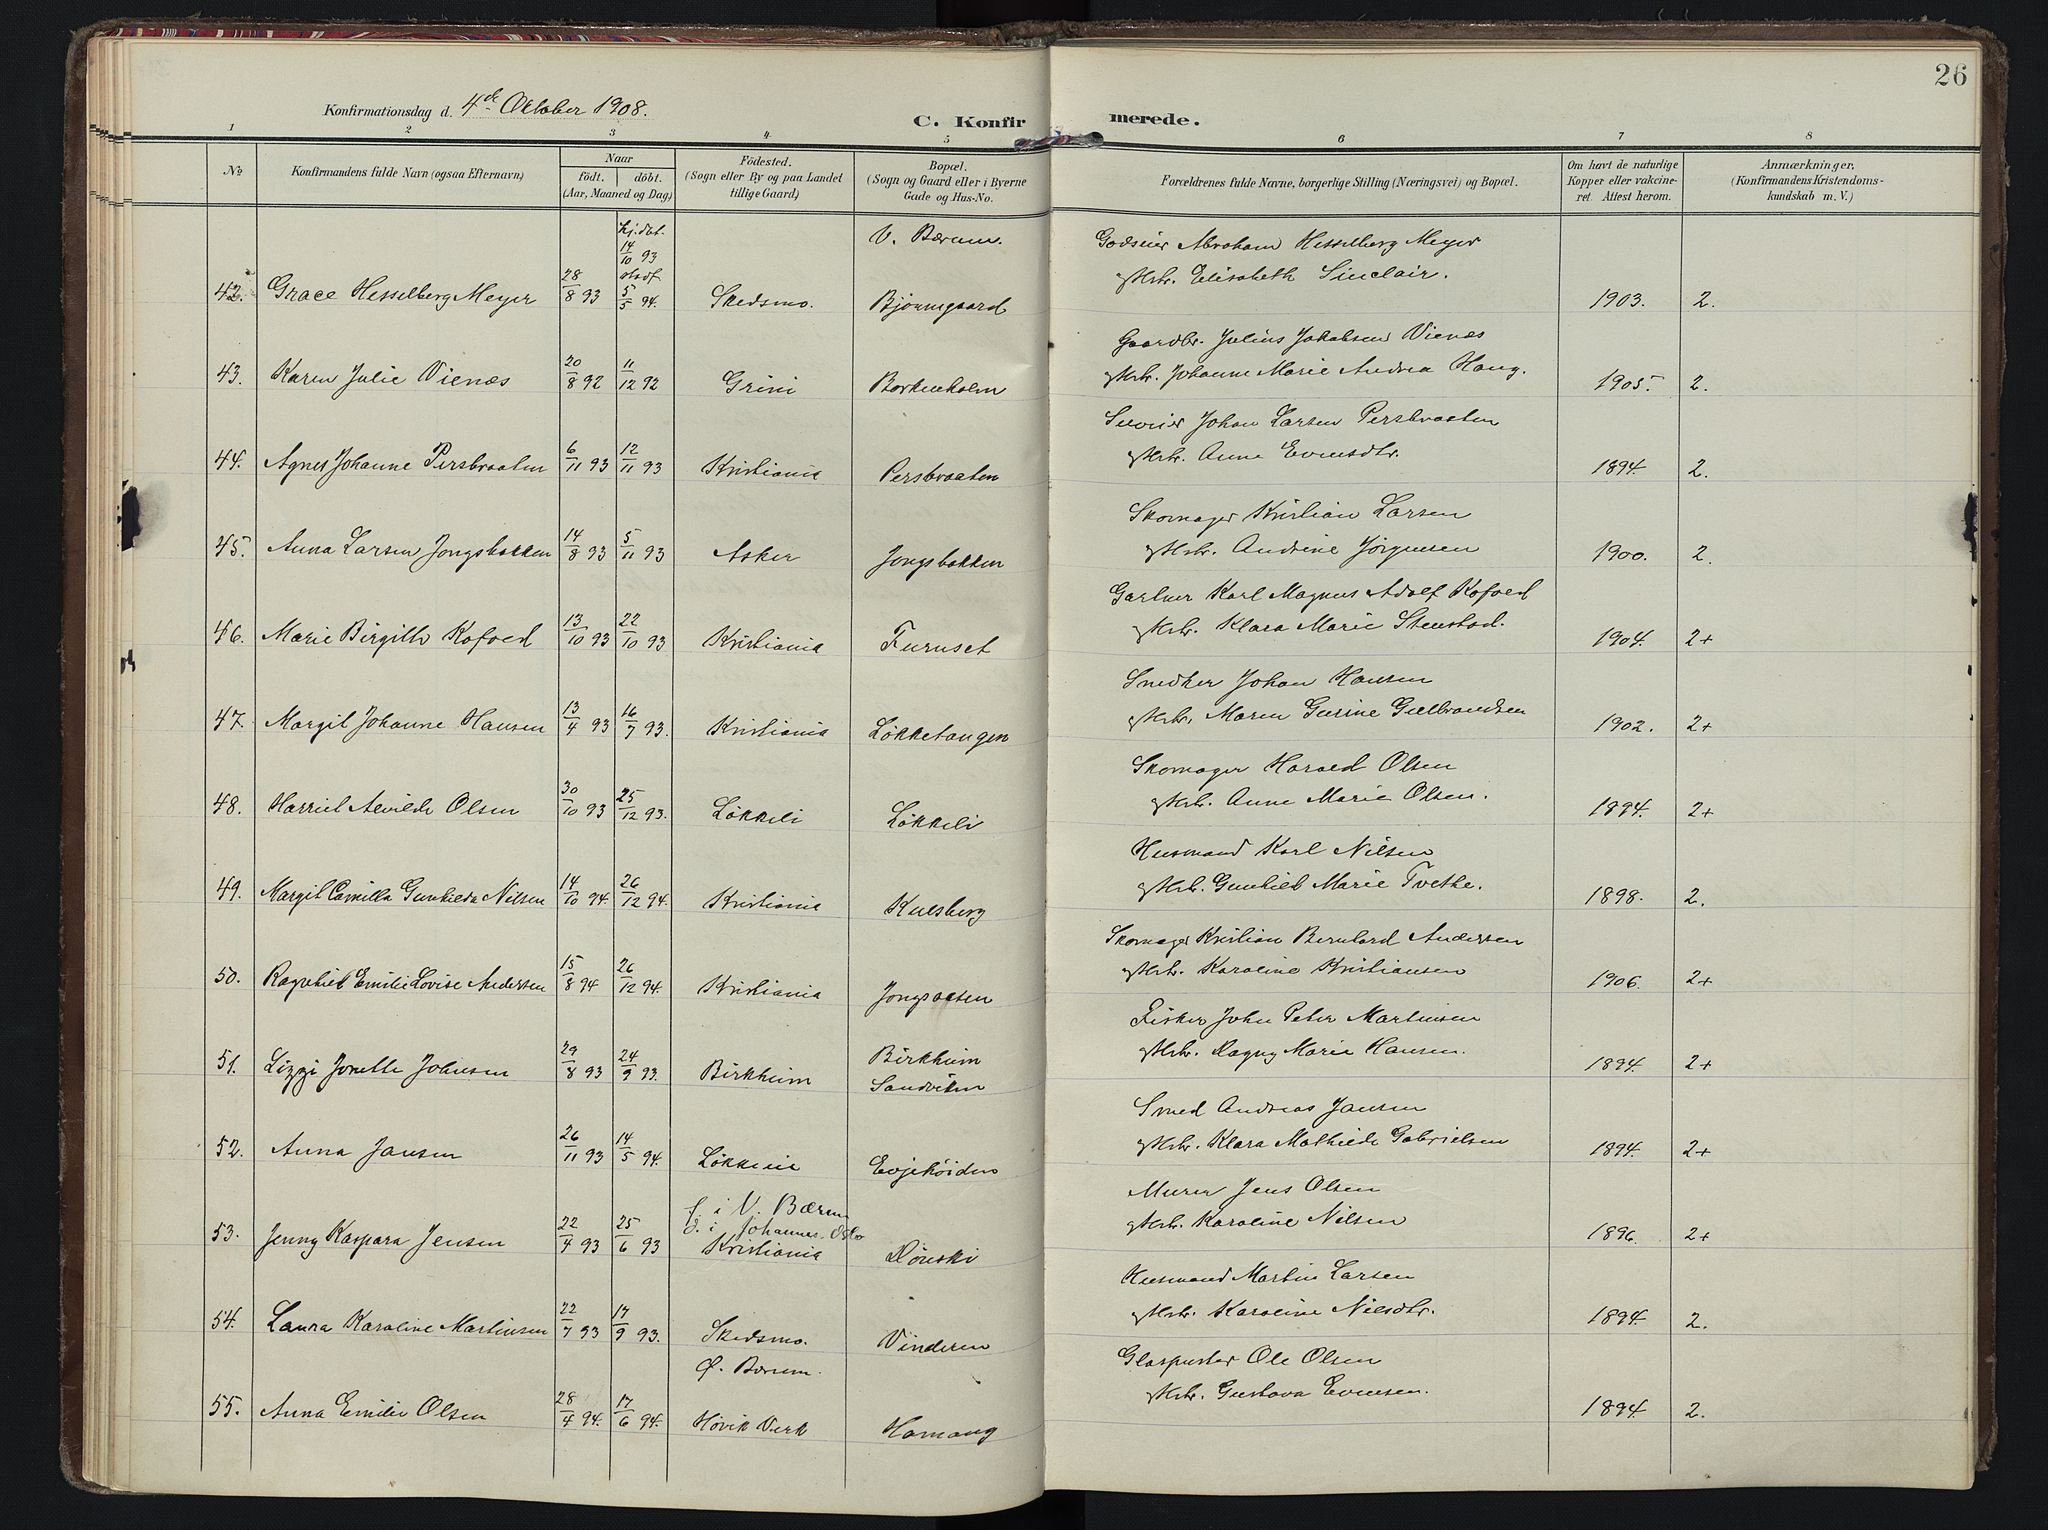 26
Konfirmationsdag d. 4de Oktober 1908.
C. Konfirmerede.
1 2 3 4 5 6 7 8
No
Konfirmandens fulde Navn (ogsaa Efternavn)
Naar
födt. döbt.
(Aar, Maaned og Dag)
Födested.
(Sogn eller By og paa Landet
tillige Gaard)
Bopæl.
(Sogn og Gaard eller i Byerne
Gade og Hus-No.
Forældrenes fulde Navne, borgerlige Stilling (Næringsvei) og Bopæl.
Om havt de naturlige
Kopper eller vakcine-
ret. Attest herom.
Anmærkninger,
(Konfirmandens Kristendoms-
kundskab m. V.)
hj.dbt. 14/10 93
V. Bærum.
Godseier Abraham Hesselberg Meyer
og Hstr. Elisabeth Sinclair.
42. Grace Hesselberg Meyer 28/8 93 stadf. 5/5 94. Skedsmo. Bjørnegaard 1903. 2.
Gaardbr. Julius Jakobsen Vienæs
og Hstr. Johanne Marie Andrea Haug.
43. Karen Julie Vienæs 20/8 92 11/12 92 Grini Borkenholm 1905. 2.
Johan Larsen Persbraaten
og Hstr. Anne Evensdtr.
44. Agnes Johanne Persbraaten 6/11 93 12/11 93 Kristiania Persbraaten 1894. 2.
Skomager Kristian Larsen
og Hstr. Andrine Jørgensen
45. Anna Larsen Jongsbakken 14/8 93 5/11 93 Asker Jongsbakken 1900. 2.
Gartner Karl Magnus Adolf Kofoed
og Hstr. Klara Marie Stenstad.
46. Marie Birgith Kofoed 13/10 93 22/10 93 Kristiania Furuset 1904. 2+
Snedker Johan Hansen
og Hstr. Maren Gurine Gulbrandsen
47. Margit Johanne Hansen 13/4 93 16/7 93. Kristiania Løkketangen 1902. 2+
Skomager Harald Olsen
og Hstr. Anne Marie Olsen.
48. Harriet Alvilde Olsen 30/10 93 25/12 93. Løkkeli Løkkeli 1894. 2+
Husmand Karl Nilsen
og Hstr. Gunhild Marie Tvethe.
49. Margit Camilla Gunhilda Nilsen 14/10 94. 26/12 94. Kristiania Kulsberg 1898. 2.
Skomager Kristian Bernhard Andersen
og Hstr. Karoline Kristiansen
50. Ragnhild Emilie Lovise Andersen 15/8 94 26/12 94. Kristiania Jongsaasen 1906. 2+
Fisker John Peter Martinsen
og Hstr. Dagny Marie Hansen.
51. Lizzi Jonette Johnsen 29/8 93 24/9 93. Birkheim Birkheim
Sandviken 1894. 2+
Smed Andreas Jansen
og Hstr. Klara Mathilde Gabrielsen
52. Anna Jansen 26/11 93 14/5 94. Løkke Evjehøiden 1894. 2+
Murer Jens Olsen
og Hstr. Karoline Nilsen
f. i V. Bærum
d. i Johannes. Oslo
53. Jenny Kaspara Jensen 22/4 93 25/6 93 Kristiania Dønski 1896. 2+
Husmand Martin Larsen
og Hstr. Karoline Nilsdtr.
54. Laura Karoline Martinsen 22/7 93 17/9 93. Skedsmo. Vinderen 1894. 2.
Glaspuster Ole Olsen
og Hstr. Gustava Evensen.
Ø. Bærum.
55. Anna Emilie Olsen 28/4 94. 17/6 94. Høvik Verk Hamang 1894. 2.